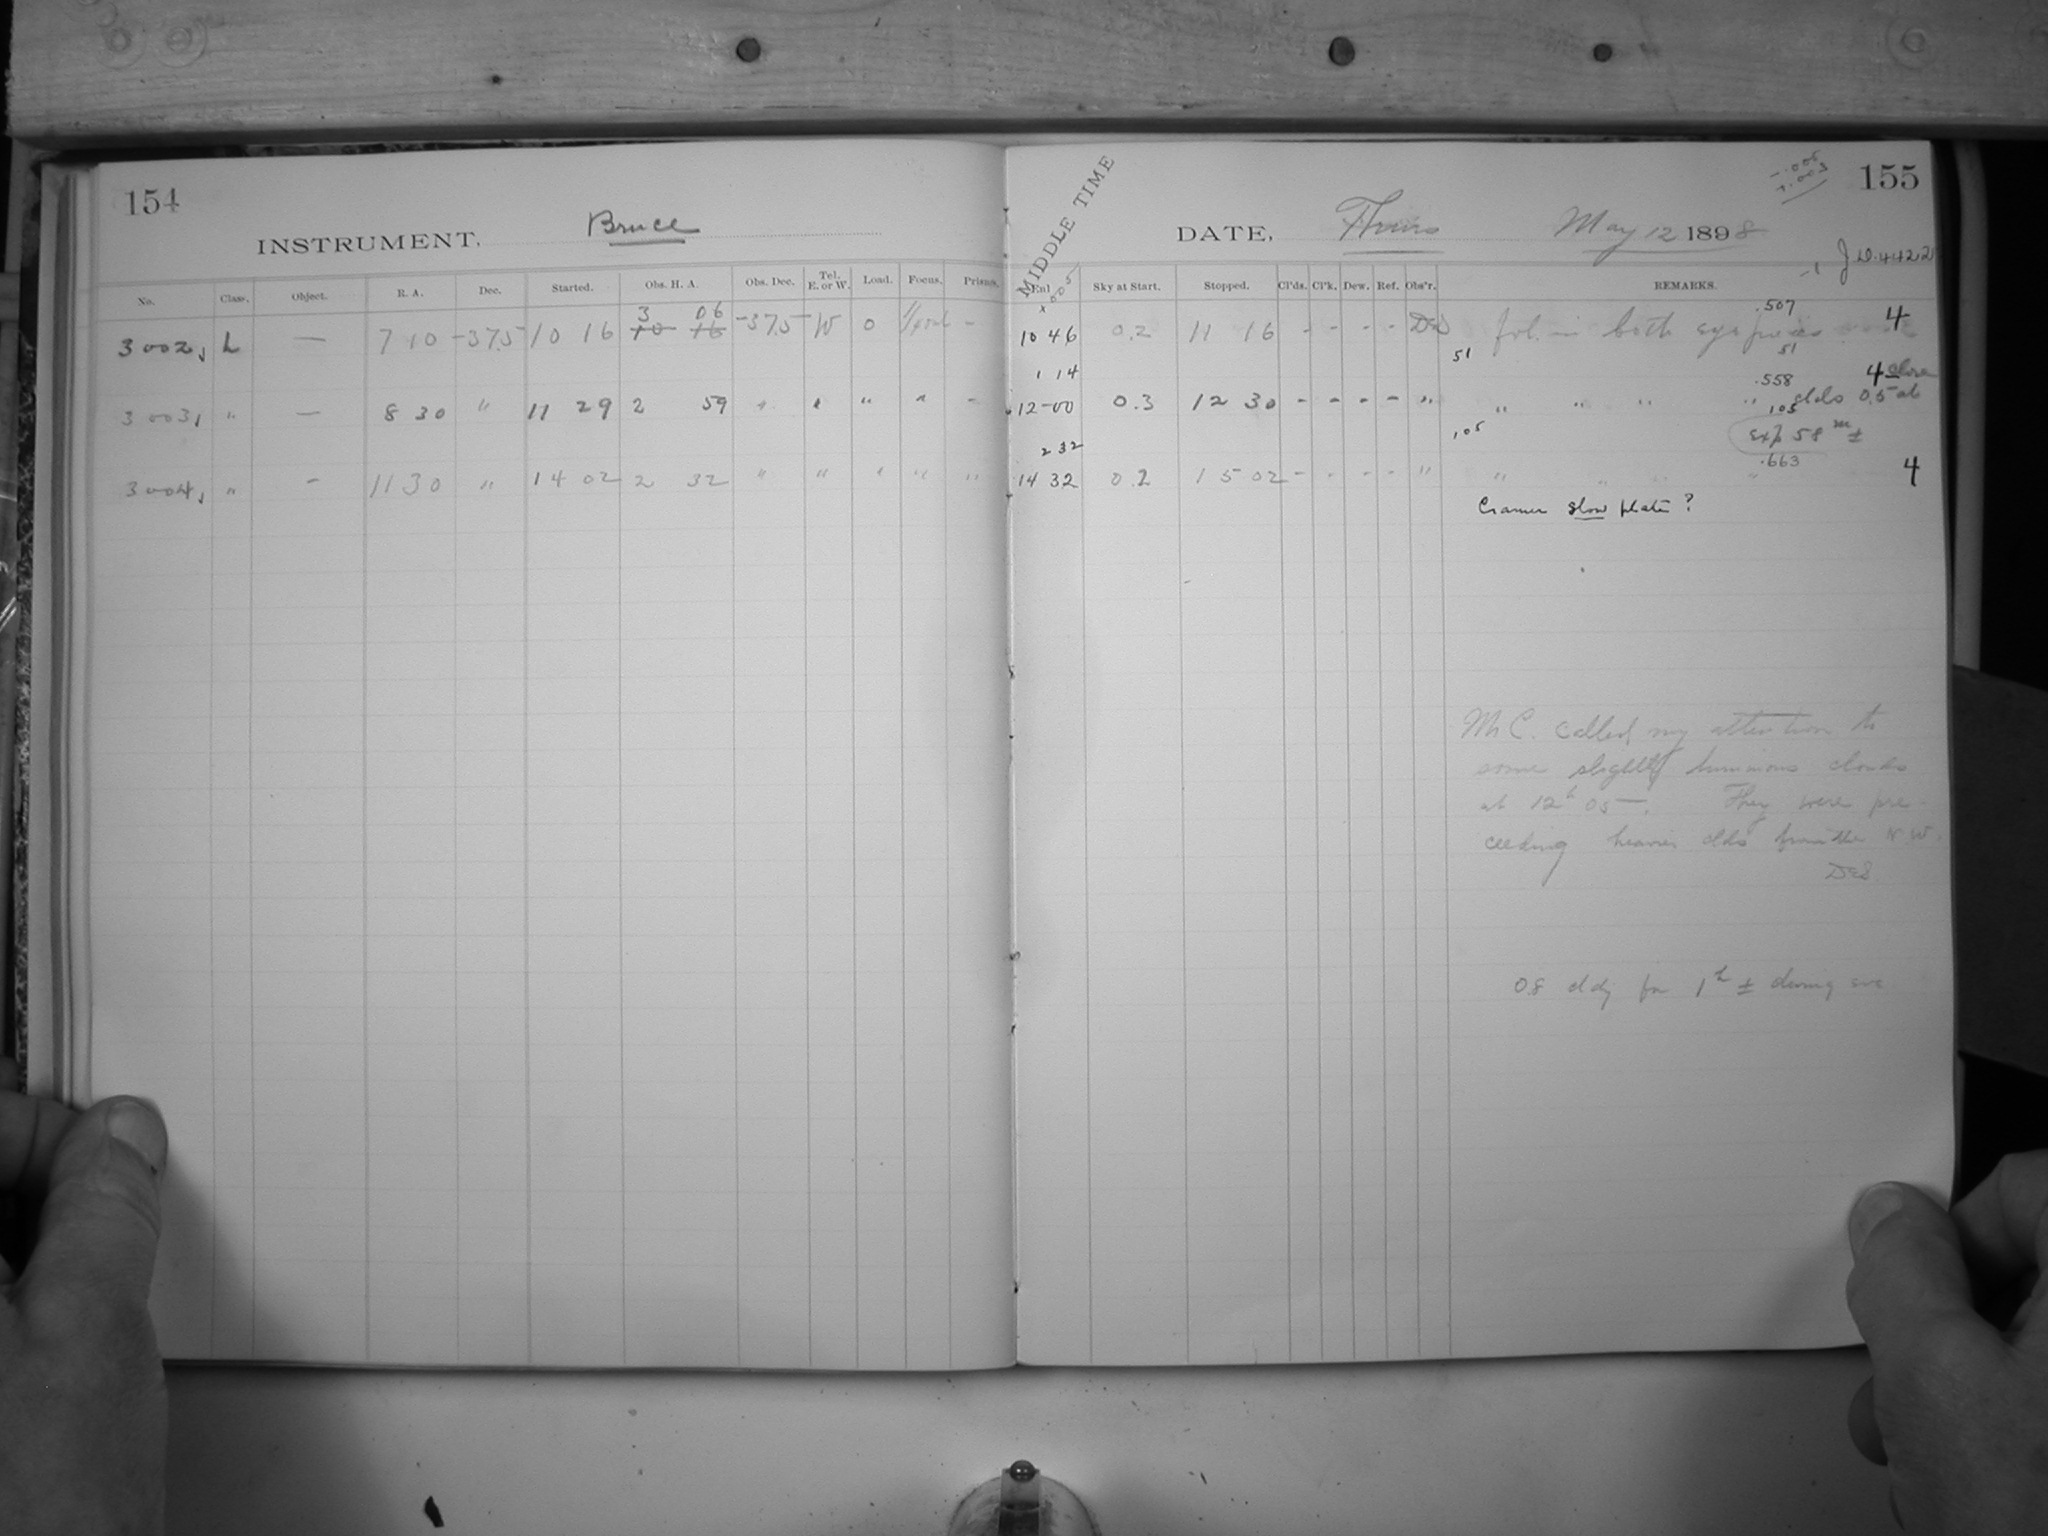 154
INSTRUMENT. Bruce
No. Class. Object. R. A. Dec. Started. Obs. H. A. Obs. Dec. Tel. E. or W. Load. Focus. Prisms.
3 06
3002, L — 7 10 -37.5 10 16 10 16 -37.5 W 0 Good -
3003, " — 8 30 " 11 29 2 59 " " " " -
3004, " - 11 30 " 14 02 2 32 " " " " "
155
MIDDLE TIME
DATE, Thurs May 12 1898
J.D. 4422
Sky at Start. Stopped. Cl'ds. Cl'k. Dew. Ref. Obs'r. REMARKS.
.507
10 46 0.2 11 16 - - - - fol. in both eye pieces 4
51 51
1 14
.558 4 close
12 00 0.3 12 30 - - - - " " " " " clds 0.5 at
105
105 Exp 58 m ±
2 32
.663
14 32 0.2 15 02 - - - - " " " " " 4
Cramer slow plate?
Mr C. called my attention to
some slightly luminous clouds
at 12h 05m. They were pre-
ceeding heavier clds from the N.W.
0.8 cldy for 1h ± during eve